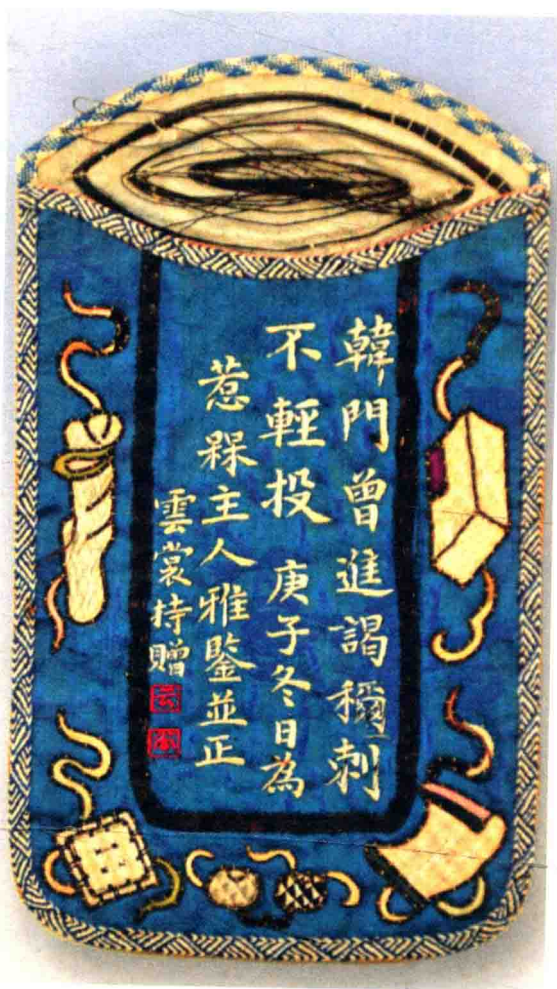 韓門曾進謁禰刺
不輕投 庚子冬日為
惹槑主人雅鑒並正
雲裳持贈